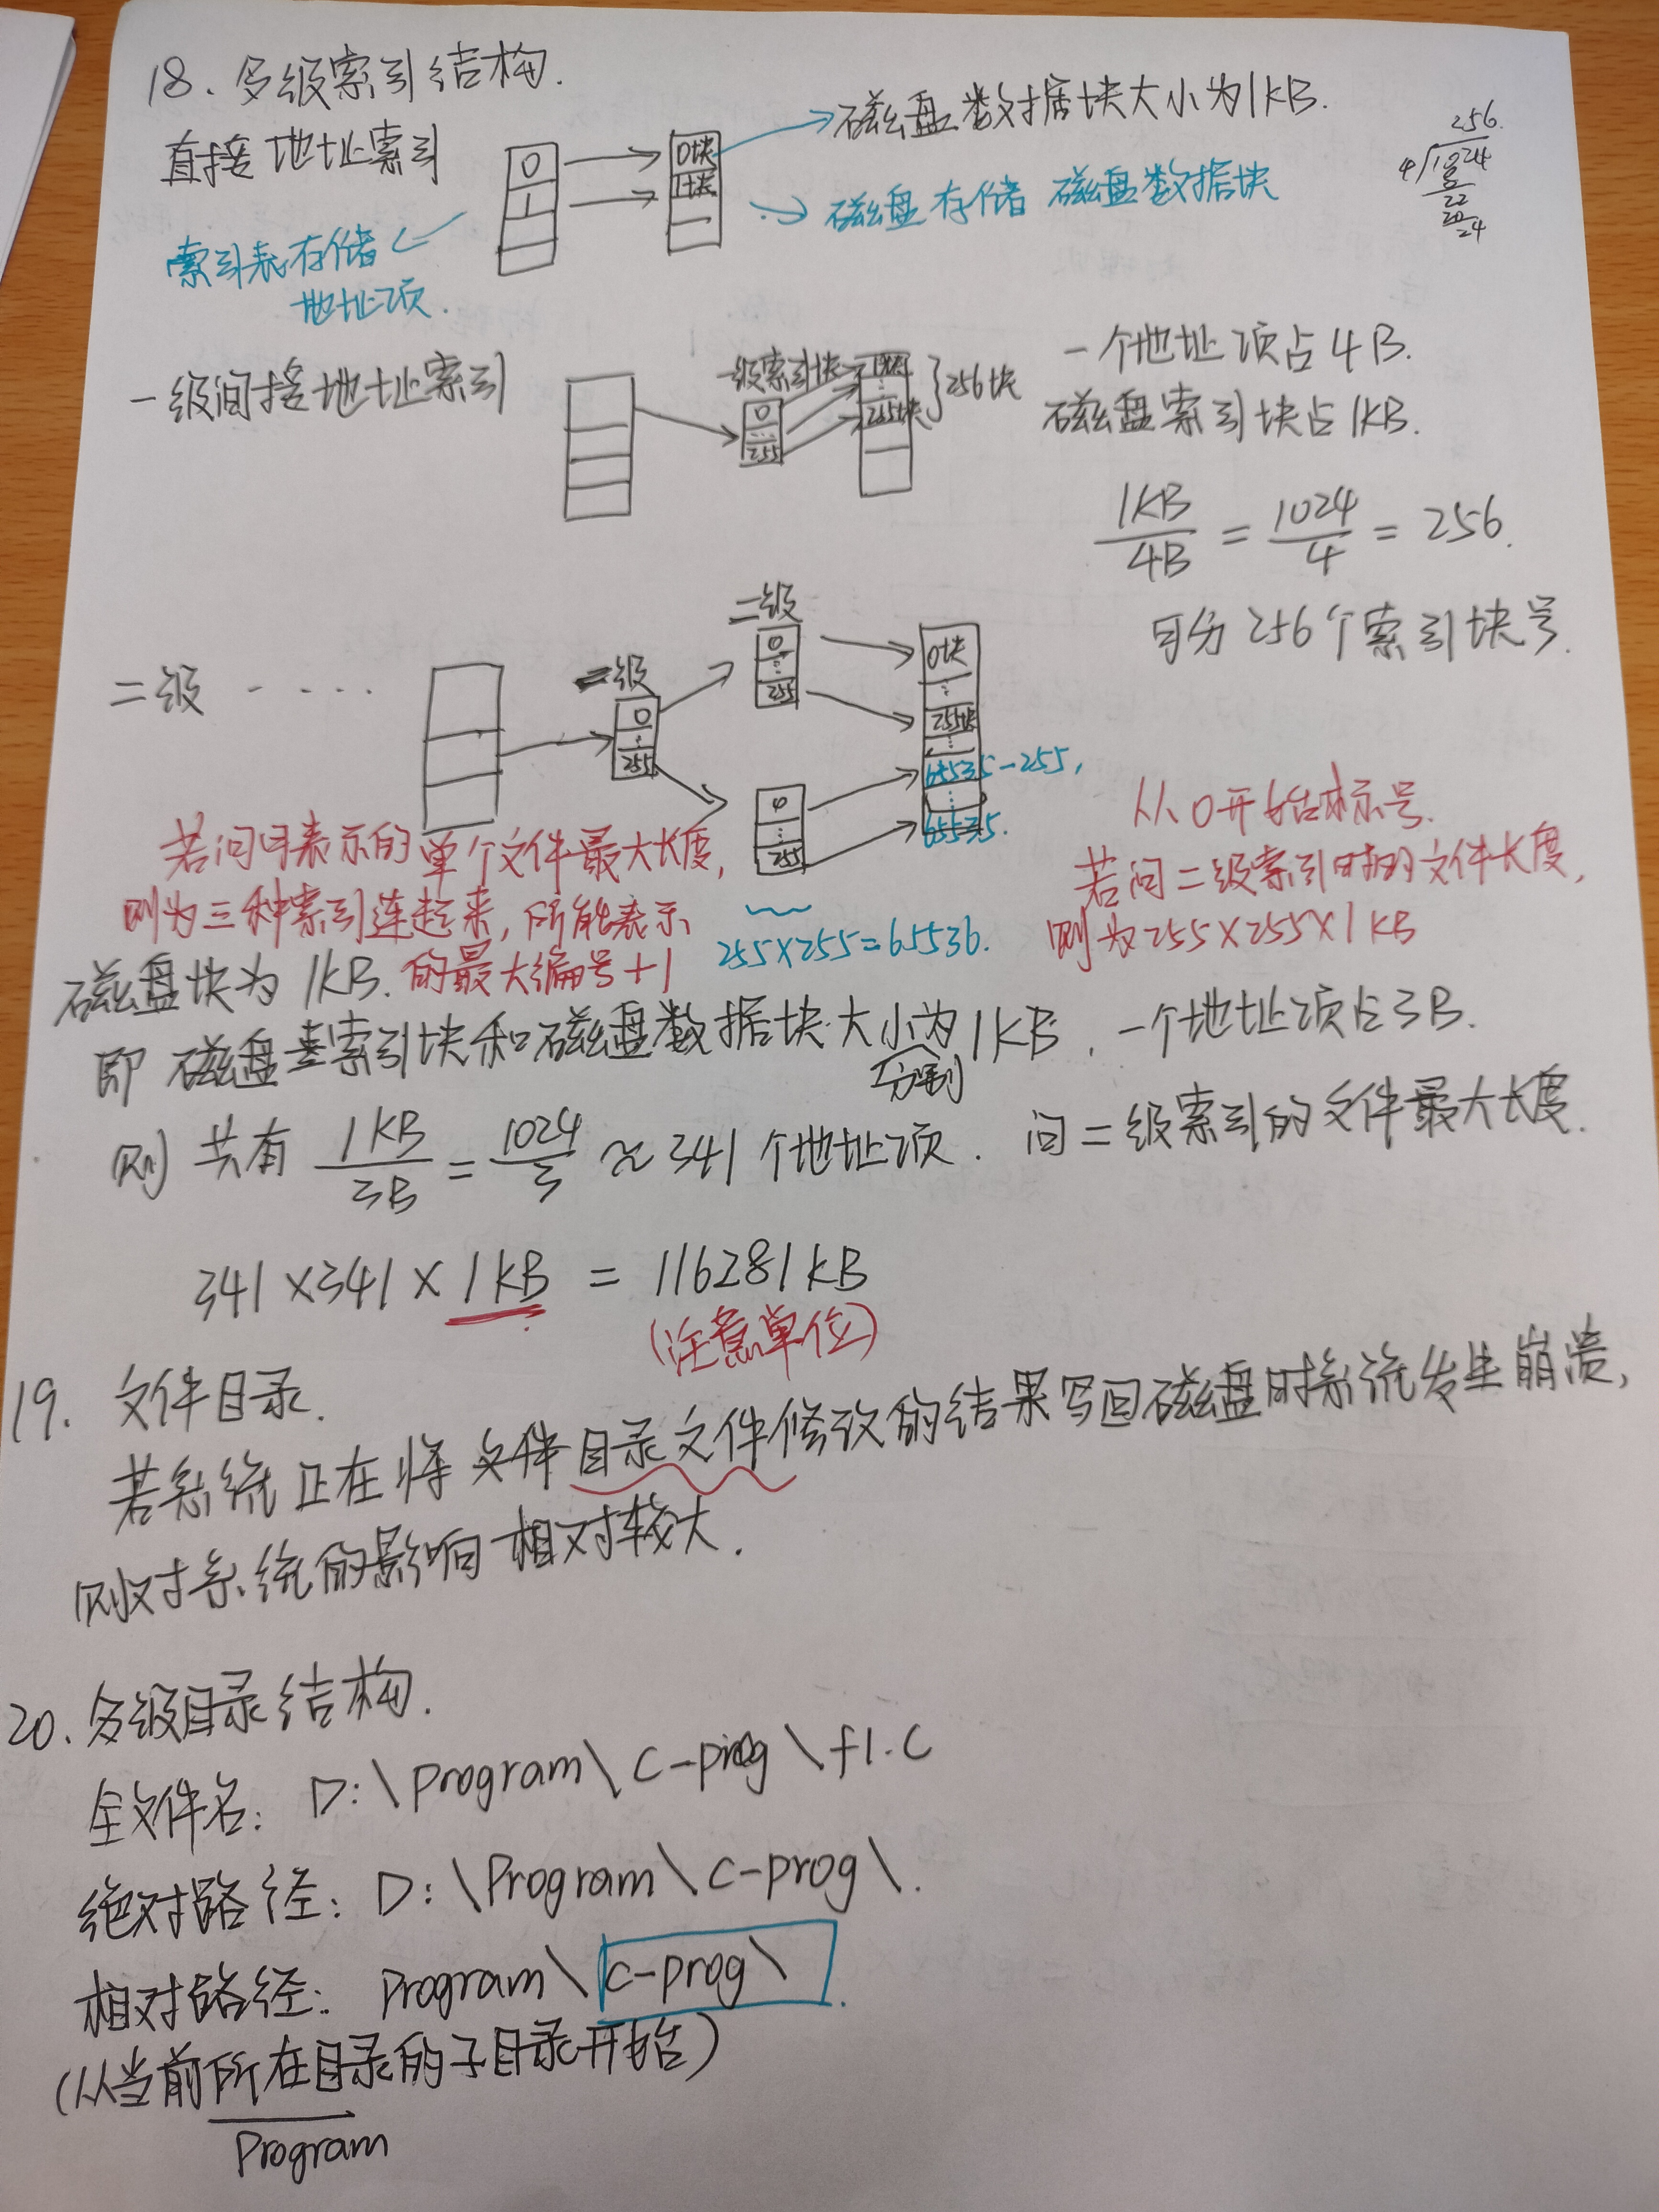 18、多级索引结构.
直接地址索引
0
1
0块
1块
磁盘数据块大小为1KB.
磁盘存储 磁盘数据块
索引表存储
地址项.
256
4 1024
8
22
20
24
一级间接地址索引
一级索引块
0
255
255块
256块
一个地址项占4B.
磁盘索引块占1KB.
1KB/4B = 1024/4 = 256.
可分256个索引块号.
二级 - ....
一级
0
255
二级
0
255
0
255
0块
255块
65535-255,
65535.
从0开始标号.
若问二级索引时的文件长度,
则为255×255×1KB
若问可表示的单个文件最大长度,
则为三种索引连起来,所能表示
的最大编号+1
255×255=65536.
磁盘块为1KB.
即 磁盘索引块和磁盘数据块大小分别为1KB, 一个地址项占3B.
则 共有 1KB/3B = 1024/3 ≈ 341个地址项. 问二级索引的文件最大长度.
341×341×1KB = 116281KB
(注意单位)
19. 文件目录.
若系统正在将文件目录文件修改的结果写回磁盘时系统发生崩溃,
则对系统的影响相对较大.
20、多级目录结构.
全文件名: D:\Program\c-prog\f1.c
绝对路径: D:\Program\c-prog\.
相对路径: Program\c-prog\.
(从当前所在目录的子目录开始)
Program